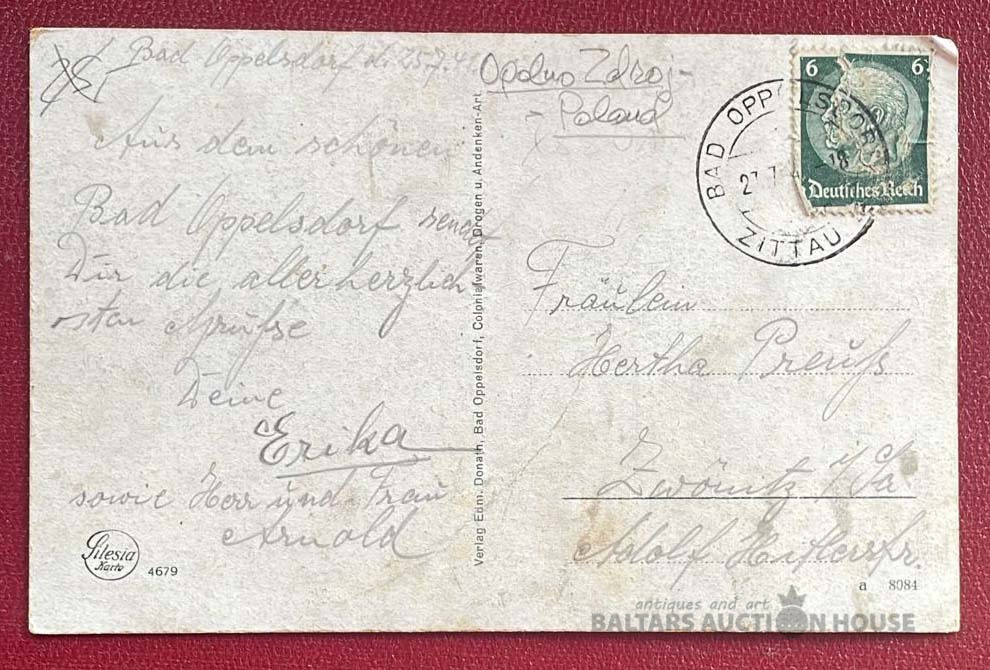 Bad Oppelsdorf d. 25.7.4
Aus dem schönen
Bad Oppelsdorf sendet
Dir die allerherzlich
sten Grüße
Deine
Erika
sowie Herr und Frau
Arnold
Silesia
Karte
4679
Verlag Edm. Donath, Bad Oppelsdorf, Colonialwaren, Drogen u. Andenken-Art.
Opolno Zdroj-
- Poland
BAD OPPELSDORF
27.7. 18
ZITTAU
6 6
Deutsches Reich
Fräulein
Hertha Preuß
Zwönitz i/Sa
Adolf Hitlerstr.
a 8084
antiques and art
BALTARS AUCTION HOUSE